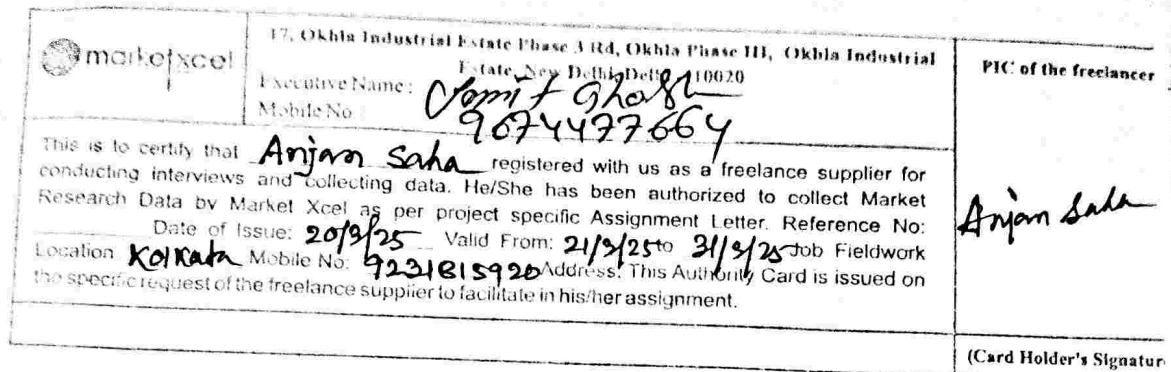 marketxcel
17, Okhla Industrial Estate Phase 3 Rd, Okhla Phase III, Okhla Industrial
Estate, New Delhi, Delhi 110020
Executive Name: Ghosh
Mobile No 9674477664
This is to certify that Anjan Saha registered with us as a freelance supplier for
conducting interviews and collecting data. He/She has been authorized to collect Market
Research Data by Market Xcel as per project specific Assignment Letter. Reference No:
Date of Issue: 20/3/25 Valid From: 21/3/25 to 31/3/25 Job Fieldwork
Location Kolkata Mobile No: 9231815920 Address: This Authority Card is issued on
the specific request of the freelance supplier to facilitate in his/her assignment.
PIC of the freelancer
Anjan Saha
(Card Holder's Signatur